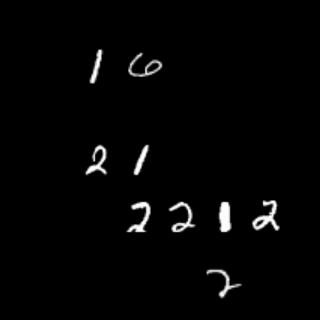 1 6
2 1
2 2 1 2
2